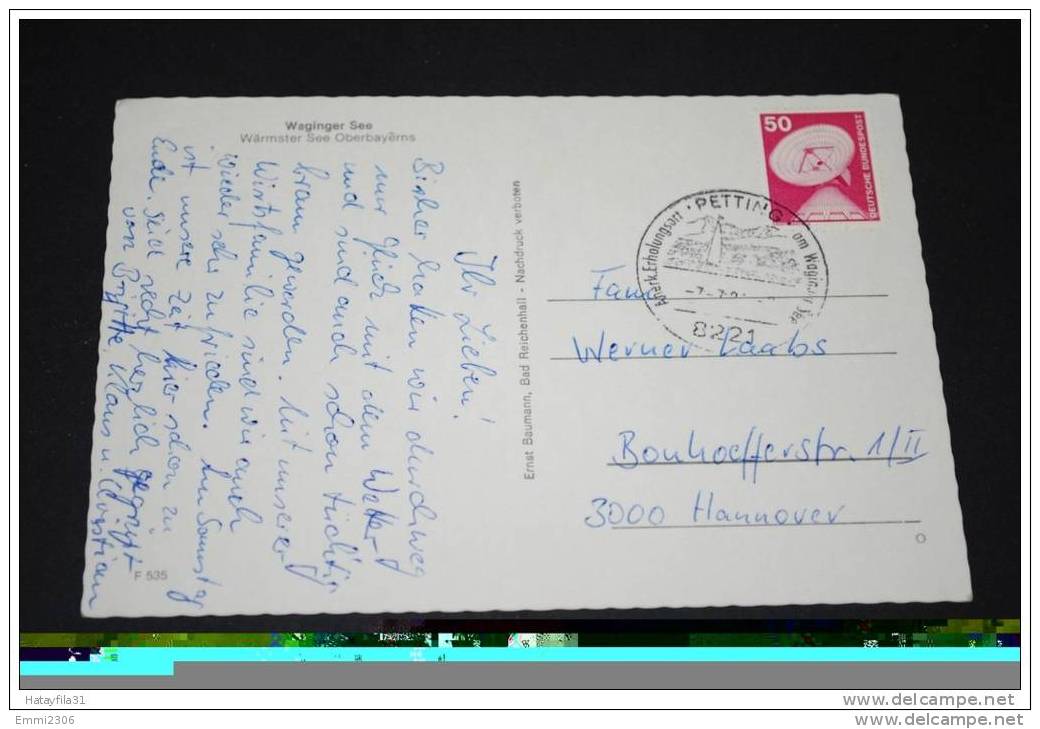 Waginger See
Wärmster See Oberbayerns
Ihr Lieben!
Bisher hatten wir durchweg
nur Glück mit dem Wetter
und sind auch schon tüchtig
braun geworden. Mit unserer
Wirtsfamilie sind wir auch
wieder sehr zufrieden. Am Samstag
ist unsere Zeit hier schon zu
Ende. Seid recht herzlich gegrüßt
von Brigitte, Klaus u. Christian
F 535
Ernst Baumann, Bad Reichenhall - Nachdruck verboten
50
DEUTSCHE BUNDESPOST
PETTING am Waginger See
Anerk. Erholungsort
8221
Fam.
Werner Laabs
Bonhoefferstr. 1/II
3000 Hannover
Hatayfila31
www.delcampe.net
Emmi2306
www.delcampe.net